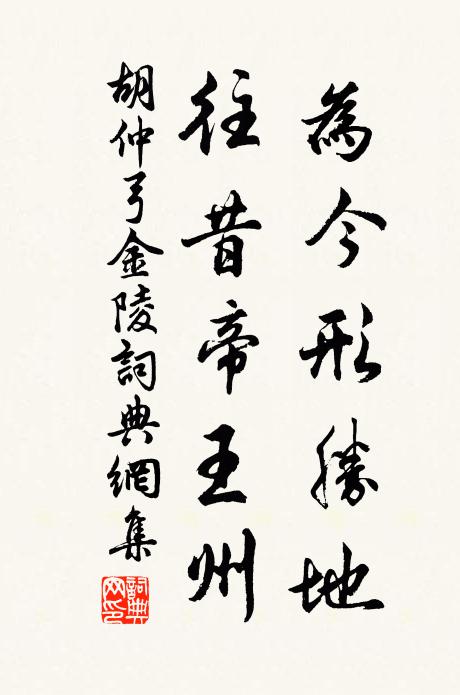 為今形勝地
往昔帝王州
胡仲弓金陵詞典網集
詞典網印